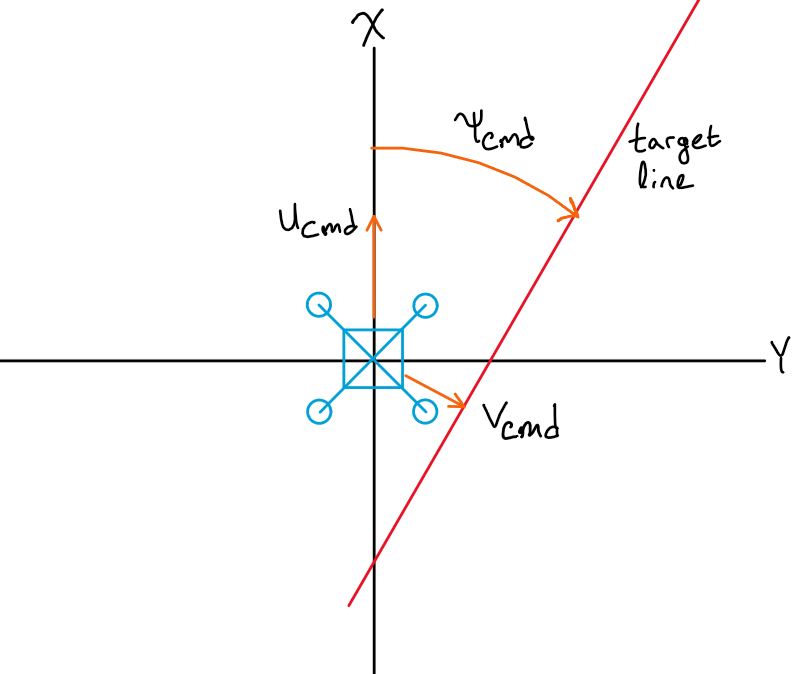 X
Ψcmd
target
line
Ucmd
Y
Vcmd